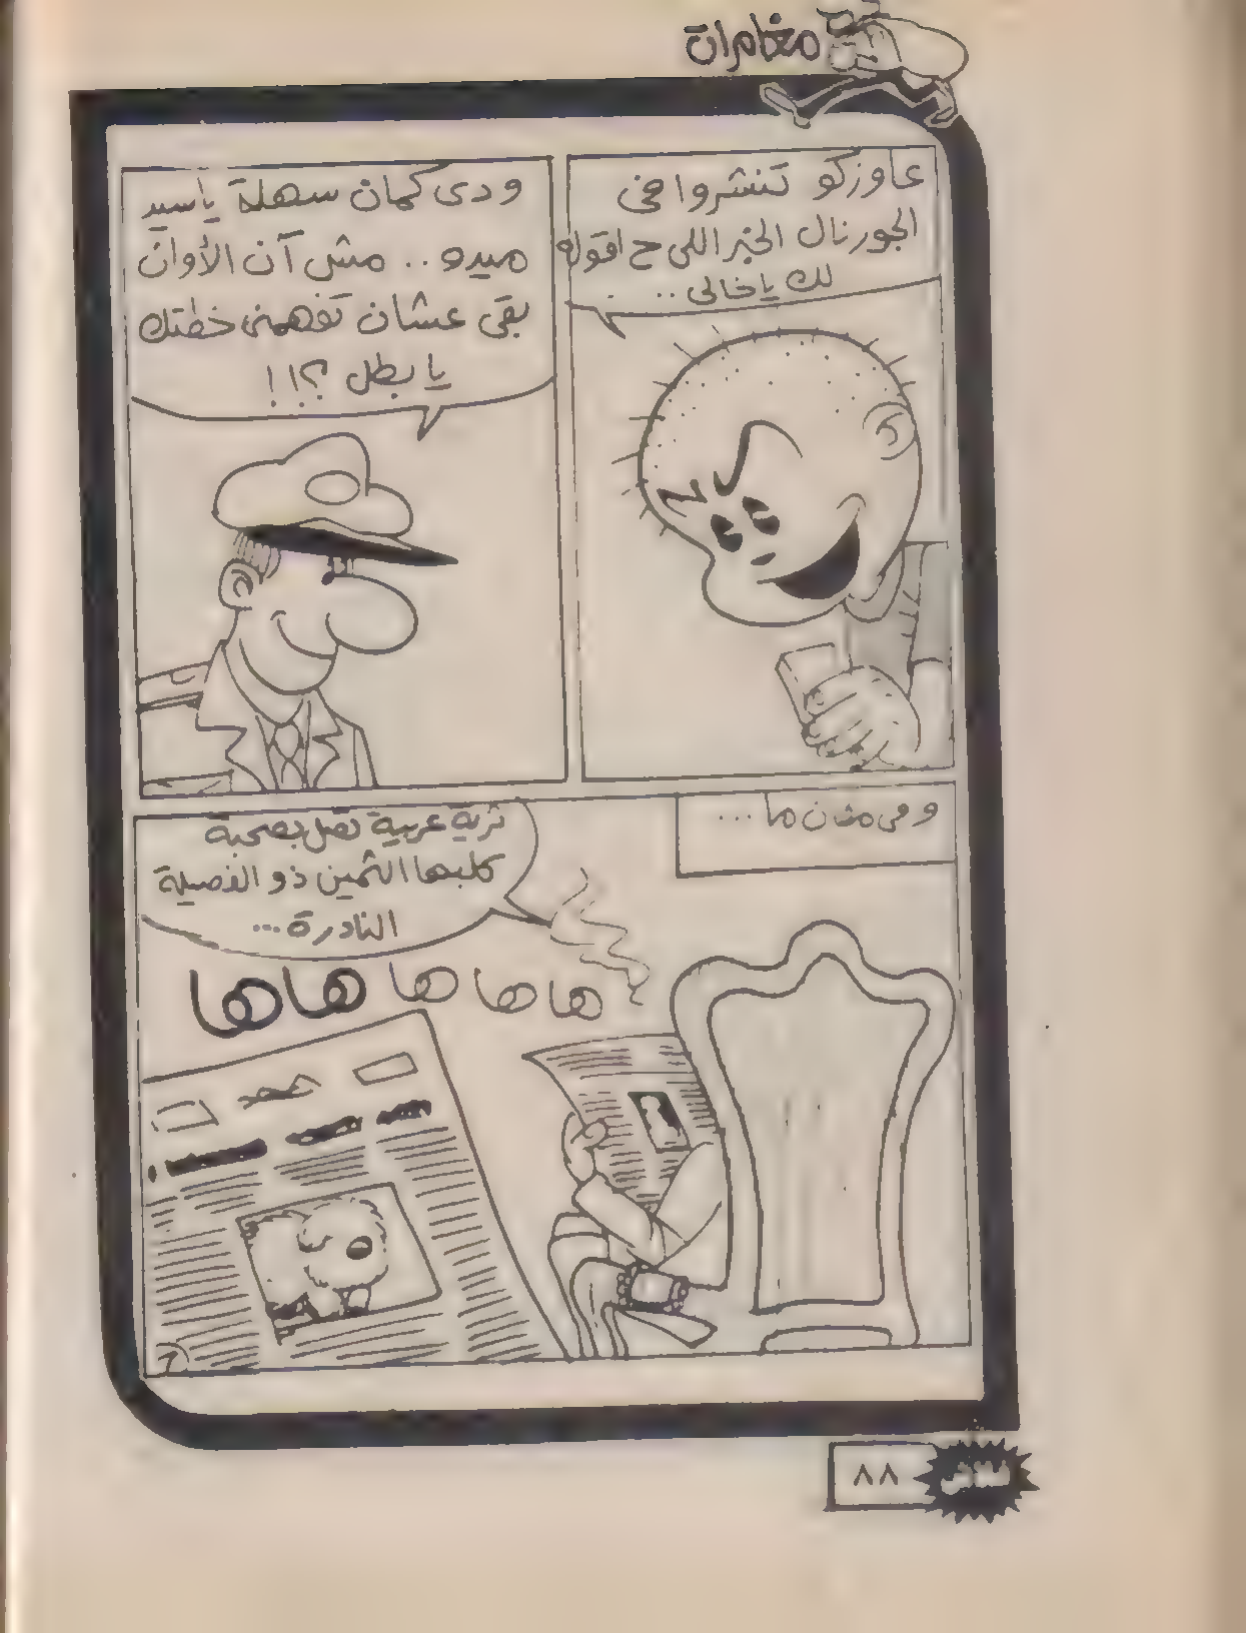 مغامرات
عاوزكو تنشروا فى
الجورنال الخبر اللى ح اقوله
لك يا خالى ..
ودى كمان سهلة يا سيد
ميدو .. مش آن الأوان
بقى عشان تفهمنى خطتك
يا بطل ؟!!
وفى مكان ما ...
ثرية عربية تصل بصحبة
كلبها الثمين ذو الفصيلة
النادرة ...
ها ها ها ها ها
٨٨